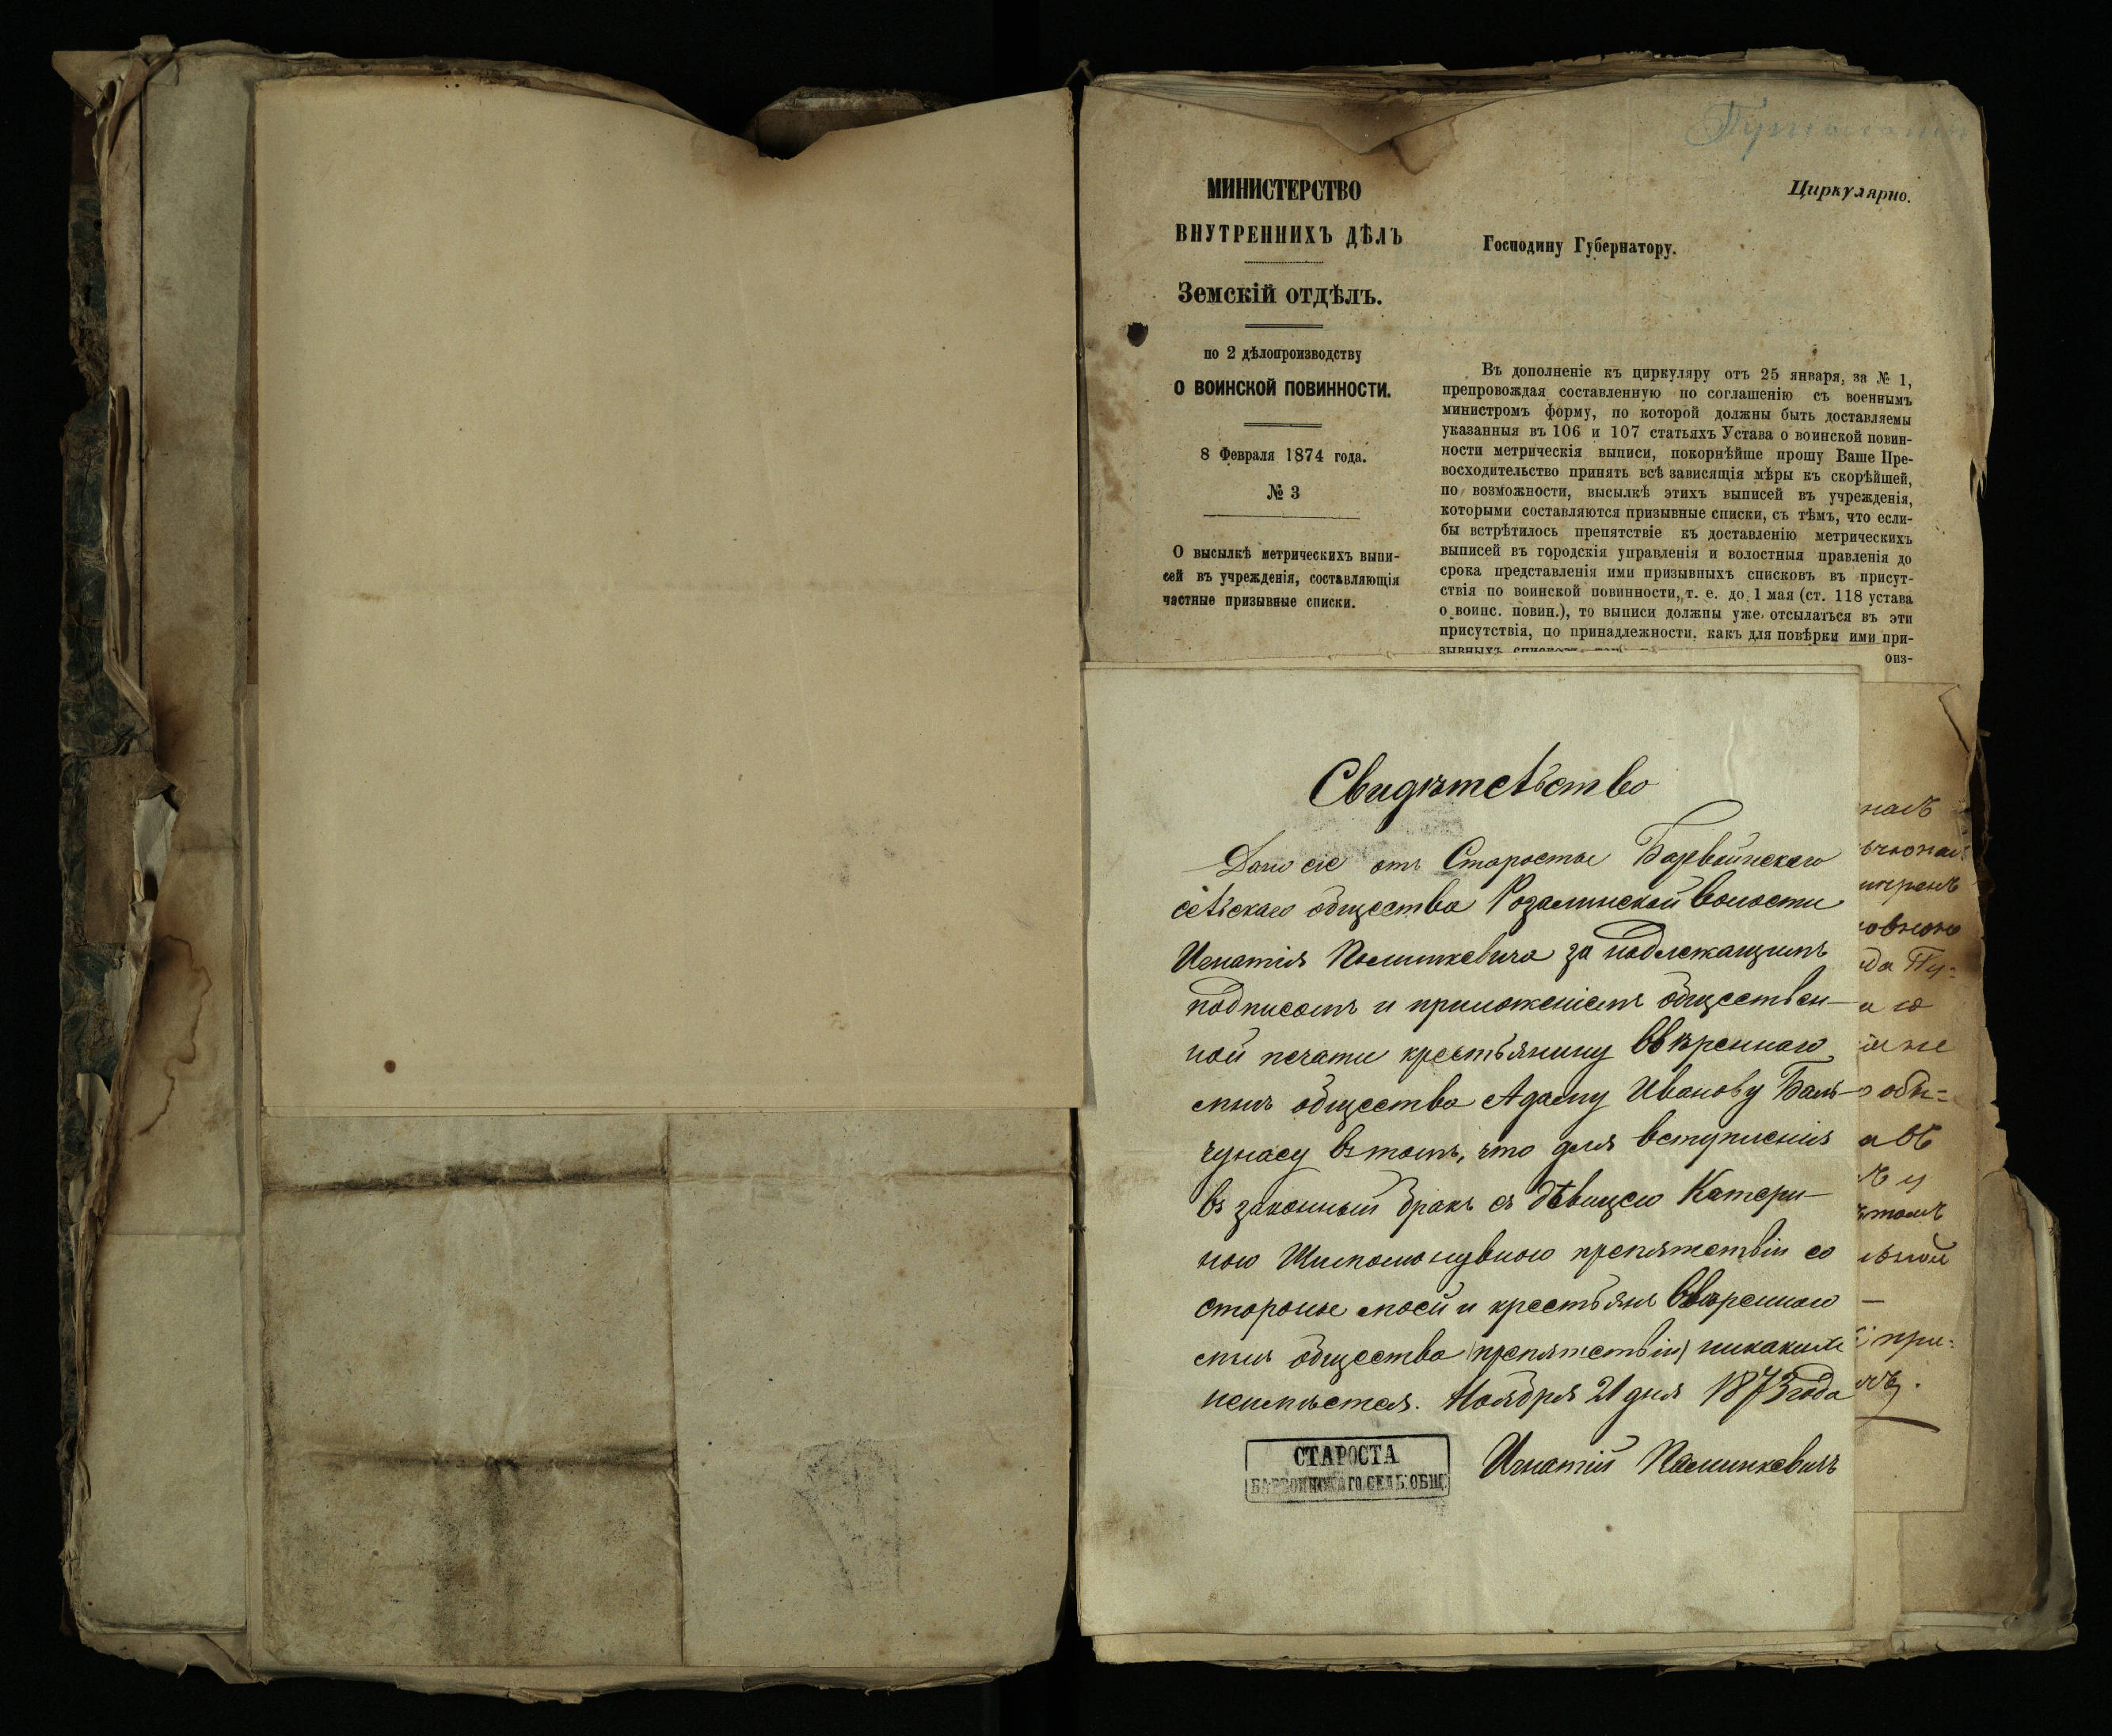 Циркулярно.
МИНИСТЕРСТВО
ВНУТРЕННИХЪ ДѢЛЪ
Господину Губернатору.
Земскій отдѣлъ.
по 2 дѣлопроизводству
О ВОИНСКОЙ ПОВИННОСТИ.
8 Февраля 1874 года.
№ 3
О высылкѣ метрическихъ выпи-
сей въ учрежденія, составляющія
частные призывные списки.
Въ дополненіе къ циркуляру отъ 25 января, за № 1,
препровождая составленную по соглашенію съ военнымъ
министромъ форму, по которой должны быть доставляемы
указанныя въ 106 и 107 статьяхъ Устава о воинской повин-
ности метрическія выписи, покорнѣйше прошу Ваше Пре-
восходительство принять всѣ зависящія мѣры къ скорѣйшей,
по возможности, высылкѣ этихъ выписей въ учрежденія,
которыми составляются призывные списки, съ тѣмъ, что если-
бы встрѣтилось препятствіе къ доставленію метрическихъ
выписей въ городскія управленія и волостныя правленія до
срока представленія ими призывныхъ списковъ въ присут-
ствія по воинской повинности, т. е. до 1 мая (ст. 118 устава
о воинс. повин.), то выписи должны уже отсылаться въ эти
присутствія, по принадлежности, какъ для повѣрки ими при-
зывныхъ списковъ
оиз-
Свидѣтельство
Дано сіе отъ Старосты Барвойнскаго
сельскаго общества Розалинской волости
Игнатія Палишкевича за надлежащимъ
подписомъ и приложеніемъ обществен-
ной печати крестьянину ввѣреннаго
мнѣ общества Адаму Иванову Баль-
чунасу въ томъ, что для вступленія
въ законный бракъ съ дѣвицею Катери-
ною препятствіи со
стороны моей и крестьянъ ввѣреннаго
мнѣ общества (препятствіи) никакихъ
неимѣется. Ноября 21 дня 1873 года
СТАРОСТА
БАРВОИНСКАГО СЕЛЬ. ОБЩ.
Игнатій
овною
да Пу-
а ю
обы-
а въ
ъ и
ьной
при-